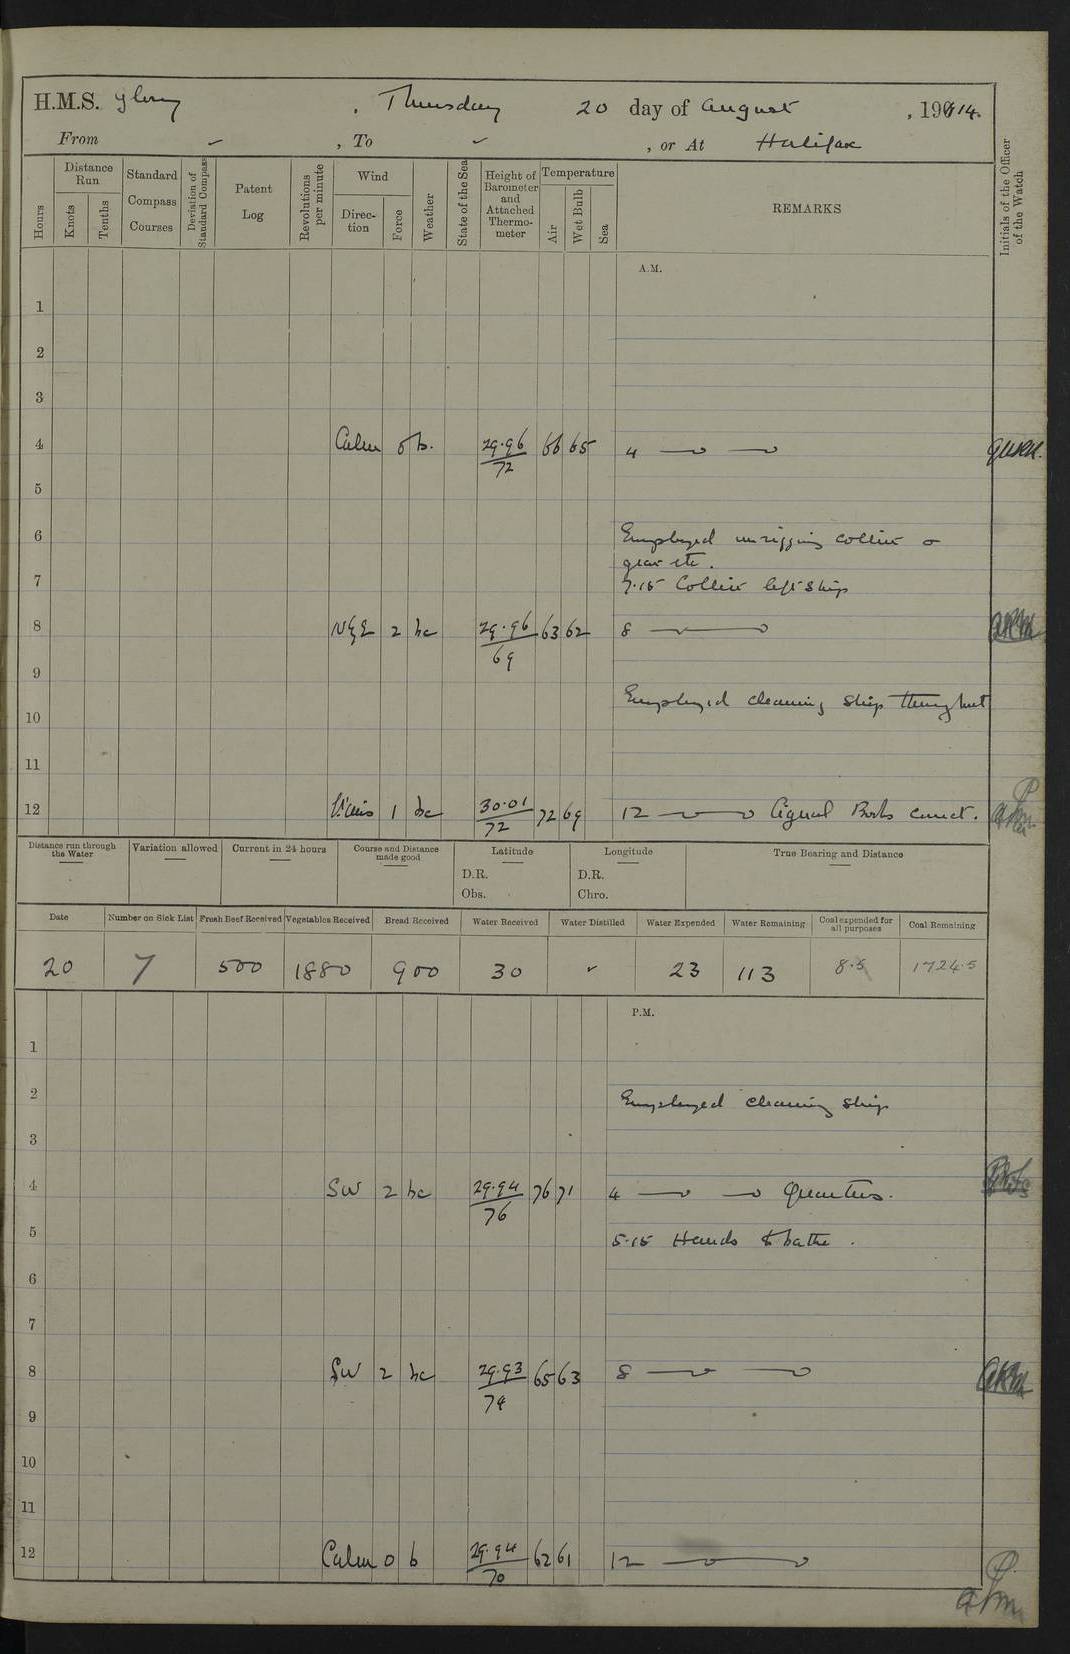 H.M.S. Glory , Thursday 20 day of August , 1914.
From ✓ , To ✓ , or At Halifax
Hours
Distance Run
Knots
Tenths
Standard Compass Courses
Deviation of Standard Compass
Patent Log
Revolutions per minute
Wind
Direction
Force
Weather
State of the Sea
Height of Barometer and Attached Thermometer
Temperature
Air
Wet Bulb
Sea
REMARKS
Initials of the Officer of the Watch
A.M.
1
2
3
4 Calm 0 b. 29.96 66 65 4
72
5
6 Employed unrigging collier
gear etc.
7 7.15 Collier left ship
8 2 bc 29.96 63 62 8
69
9
Employed cleaning ship throughout
10
11
12 1 bc 30.01 72 69 12 Signal Books correct.
72
Distance run through the Water
Variation allowed
Current in 24 hours
Course and Distance made good
Latitude
D.R.
Obs.
Longitude
D.R.
Chro.
True Bearing and Distance
Date Number on Sick List Fresh Beef Received Vegetables Received Bread Received Water Received Water Distilled Water Expended Water Remaining Coal expended for all purposes Coal Remaining
20 7 500 1880 900 30 ✓ 23 113 8.5 1724.5
P.M.
1
2 Employed cleaning ship
3
4 SW 2 bc 29.94 76 71 4 Quarters.
76
5 5.15 Hands to bathe.
6
7
8 SW 2 bc 29.93 65 63 8
74
9
10
11
12 Calm 0 b 29.94 62 61 12
70